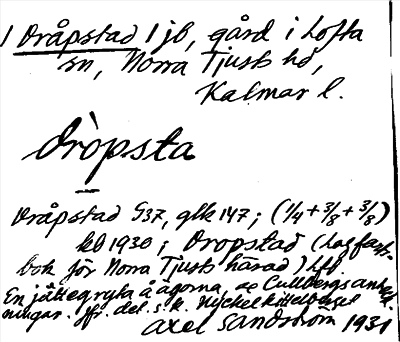 1 Dråpstad 1 jb, gård i Lofta
sn, Norra Tjusts hd,
Kalmar l.
dròpsta
Dråpstad G37, glk 147; (1/4 + 3/8 + 3/8)
kb 1930; Dropstad (Lagfarts-
bok för Norra Tjusts härad) hfl.
En jättegryta å ägorna, se Cullbergs anteck-
ningar. Jfr. del. s. k. Nyckelkittelberget
Axel Sandström 1931